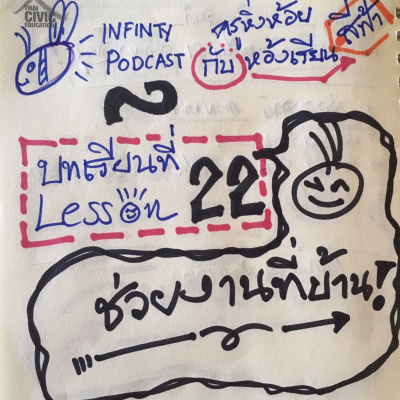 THAI
CIVIC
EDUCATION
INFINTY
PODCAST
ครูหิ่งห้อย
กับ ห้องเรียน สีฟ้า
บทเรียนที่
Lesson 22
ช่วยงานที่บ้าน!